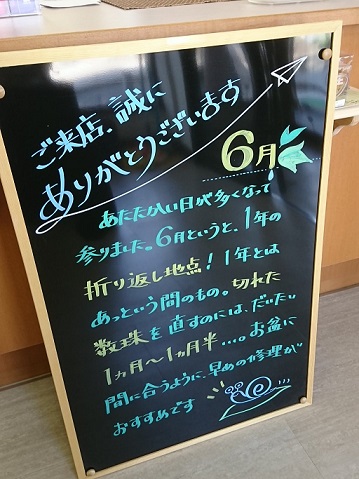 ご来店、誠に
ありがとうございます
6月
あたたかい日が多くなって
参りました。6月というと、1年の
折り返し地点！1年とは
あっという間のもの。切れた
数珠を直すのには、だいたい
1ヵ月〜1ヵ月半…。お盆に
間に合うように、早めの修理が
おすすめです